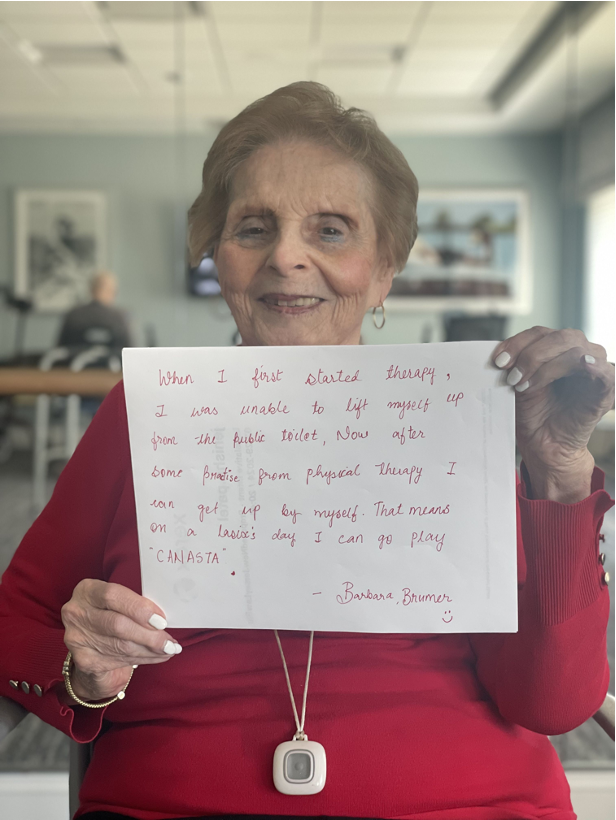 When I first started therapy,
I was unable to lift myself up
from the public toilet, Now after
some practise from physical therapy I
can get up by myself. That means
on a lasix's day I can go play
"CANASTA".
- Barbara, Brumer